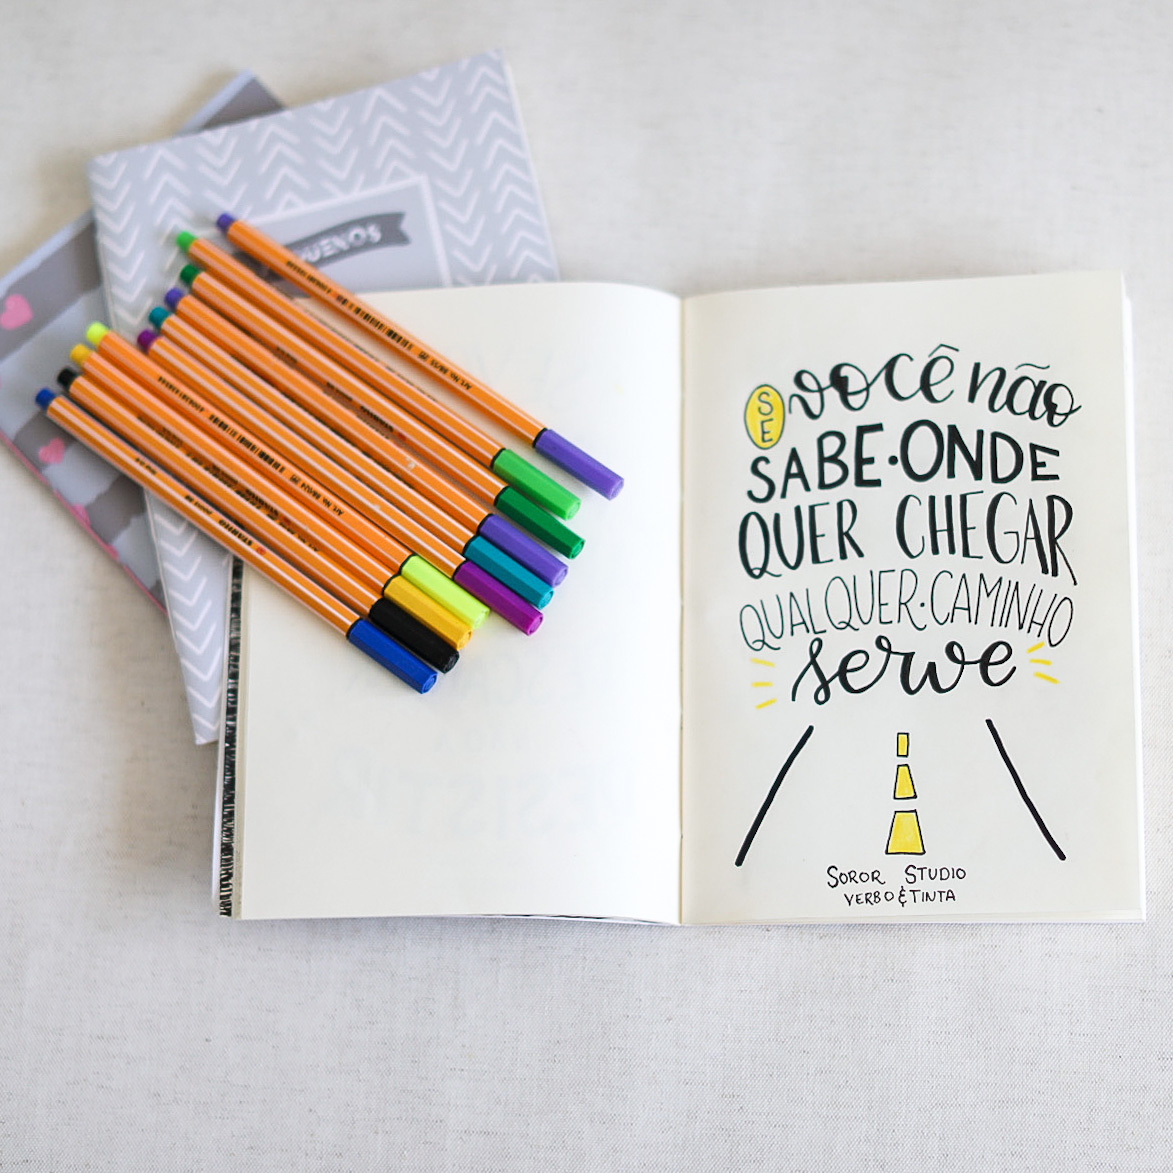 SE você não
SABE·ONDE
QUER CHEGAR
QUALQUER·CAMINHO
serve
SOROR STUDIO
VERBO & TINTA